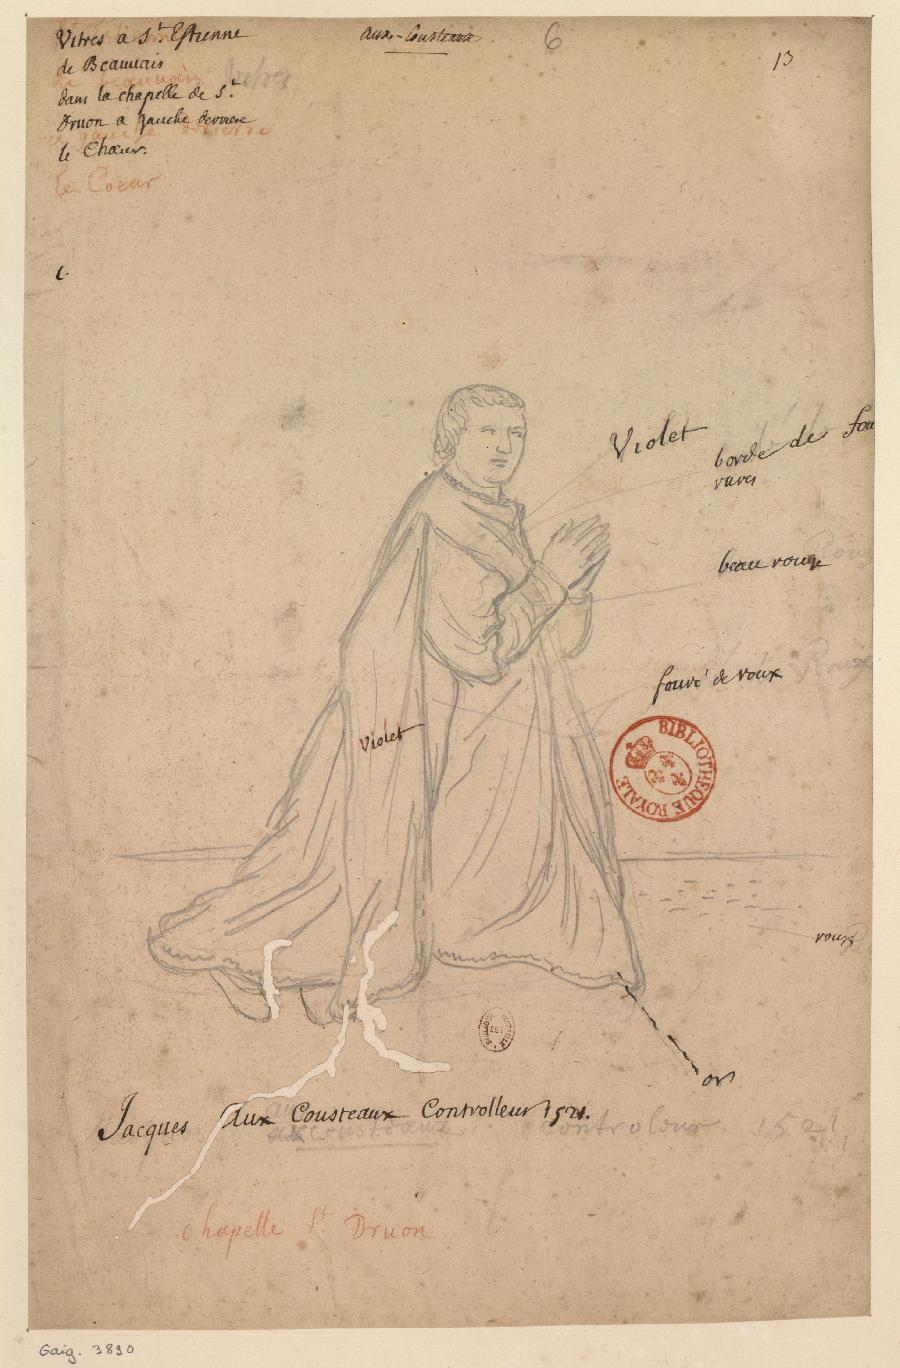 Vitres a S.t Estienne
de Beauuais
dans la chapelle de S.t
Druon a gauche derriere
le Chœur.
de beauuais
a gauche derriere
le Coeur
aux-Cousteaux.
6
13
Violet
bordé de fou
rures
beau rouge
Rouge
fouré de roux
Violet
BIBLIOTHEQUE ROYALE
roux
or
Jacques Aux Cousteaux Controlleur 1521.
aux cousteaux Controleur 1521
chapelle St Druon
Gaig. 3890